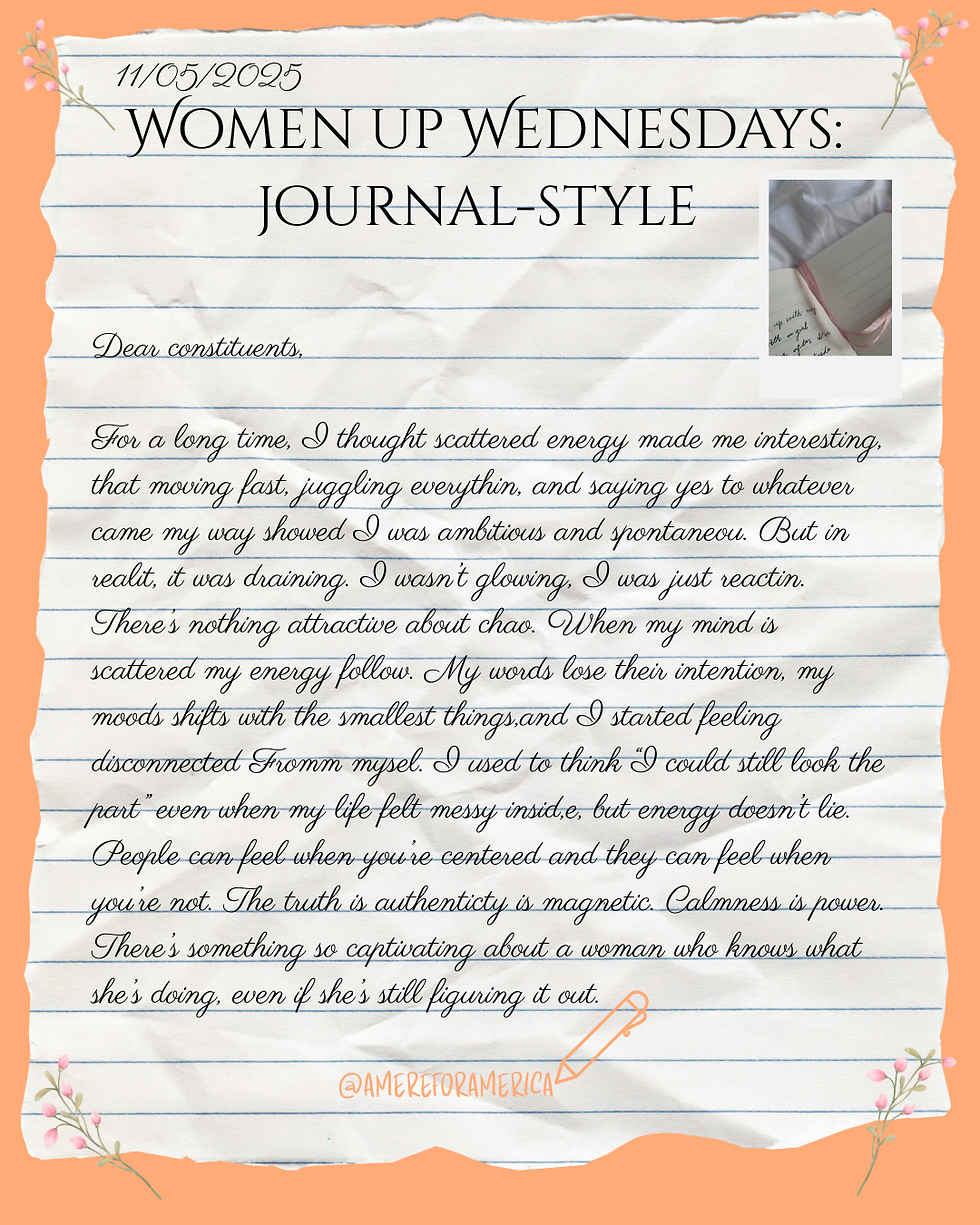 11/05/2025
WOMEN UP WEDNESDAYS:
JOURNAL-STYLE
up with my
with a girl
often. I've
Dear constituents,
For a long time, I thought scattered energy made me interesting,
that moving fast, juggling everythin, and saying yes to whatever
came my way showed I was ambitious and spontaneou. But in
realit, it was draining. I wasn't glowing, I was just reactin.
There's nothing attractive about chao. When my mind is
scattered my energy follow. My words lose their intention, my
moods shifts with the smallest things,and I started feeling
disconnected Fromm mysel. I used to think “I could still look the
part” even when my life felt messy insid,e, but energy doesn't lie.
People can feel when you're centered and they can feel when
you're not. The truth is authenticty is magnetic. Calmness is power.
There's something so captivating about a woman who knows what
she's doing, even if she's still figuring it out.
@AMEREFORAMERICA